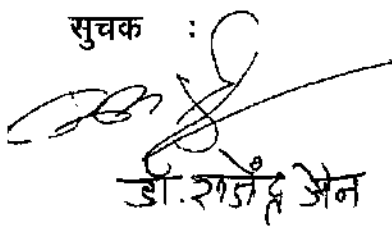 सुचक :
डॉ. राजेंद्र जैन